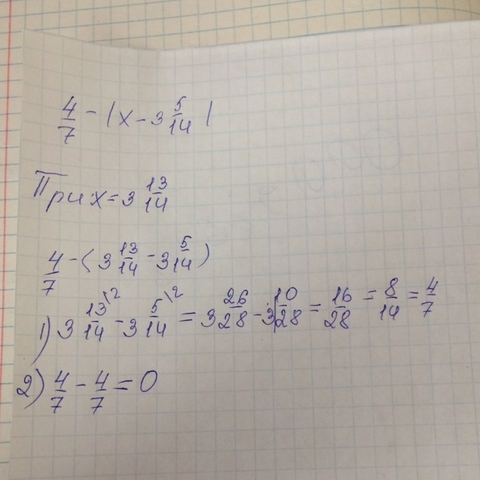 4/7 - (x - 3 5/14)
При x = 3 13/14
4/7 - (3 13/14 - 3 5/14)
1) 3 13/14 \2 - 3 5/14 \2 = 3 26/28 - 3 10/28 = 16/28 = 8/14 = 4/7
2) 4/7 - 4/7 = 0